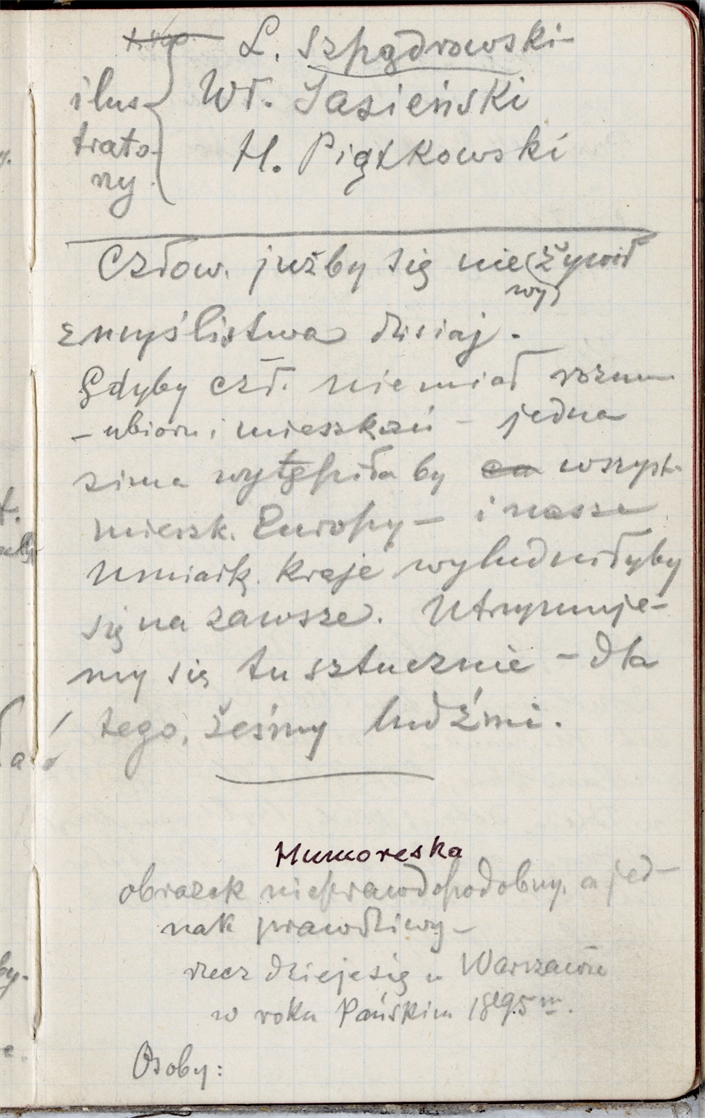 L. Szpądrowski
ilus- Wł. Jasieński
trato- H. Piątkowski
rzy
Człow. już by się nie (żywił
wy)
z myślistwa dzisiaj.
Gdyby czł. nie miał rozum
– ubioru i mieszkań – jedna
zima wytępiła by wszystk.
mieszk. Europy – i nasze
umiark. kraje wyludniłyby
się na zawsze. Utrzymuje-
my się tu sztucznie – dla
tego, żeśmy ludźmi.
Humoreska
obrazek nieprawdopodobny, a jed-
nak prawdziwy –
rzecz dzieje się w Warszawie
w roku Pańskim 1895 m.
Osoby: